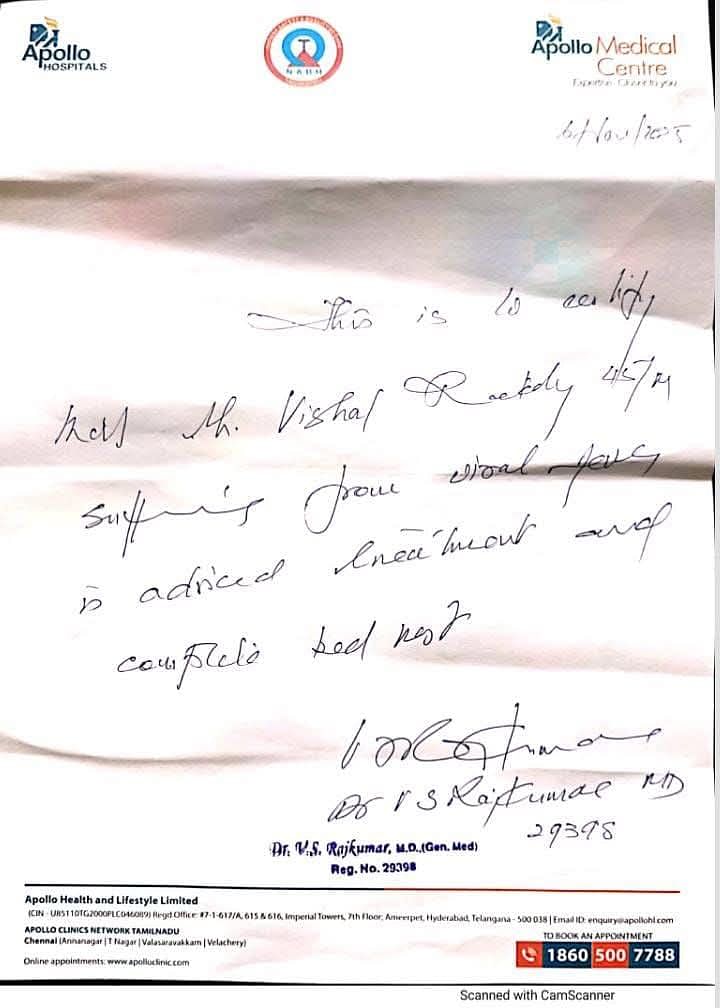 Apollo
HOSPITALS
NABH
Apollo Medical
Centre
Expertise. Closer to you
/2025
This is to certify
that Mr. Vishal Reddy 45/M
suffering from viral fever
is adviced treatment and
complete bed rest
Dr V S Rajkumar MD
29398
Dr. V.S. Rajkumar, M.D.,(Gen. Med)
Reg. No. 29398
Apollo Health and Lifestyle Limited
(CIN - U85110TG2000PLC046089) Regd Office: #7-1-617/A, 615 & 616, Imperial Towers, 7th Floor, Ameerpet, Hyderabad, Telangana - 500 038 | Email ID: enquiry@apollohl.com
APOLLO CLINICS NETWORK TAMILNADU
Chennai (Annanagar | T Nagar | Valasaravakkam | Velachery)
TO BOOK AN APPOINTMENT
1860 500 7788
Online appointments: www.apolloclinic.com
Scanned with CamScanner